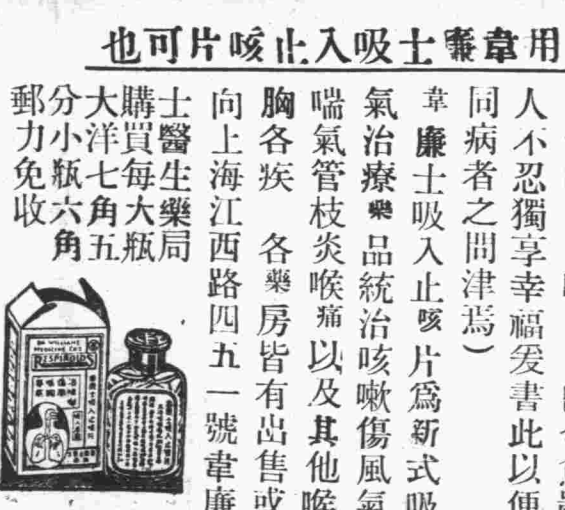 用韋廉士吸入止咳片可也
人不忍獨享幸福爰書此以便
同病者之問津焉）
韋廉士吸入止咳片爲新式吸
氣治療藥品統治咳嗽傷風氣
喘氣管枝炎喉痛以及其他喉
胸各疾 各藥房皆有出售或
向上海江西路四五一號韋廉
士醫生藥局
購買每大瓶
大洋七角五
分小瓶六角
郵力免收
DR WILLIAMS
MEDICINE CO'S
RESPIROIDS